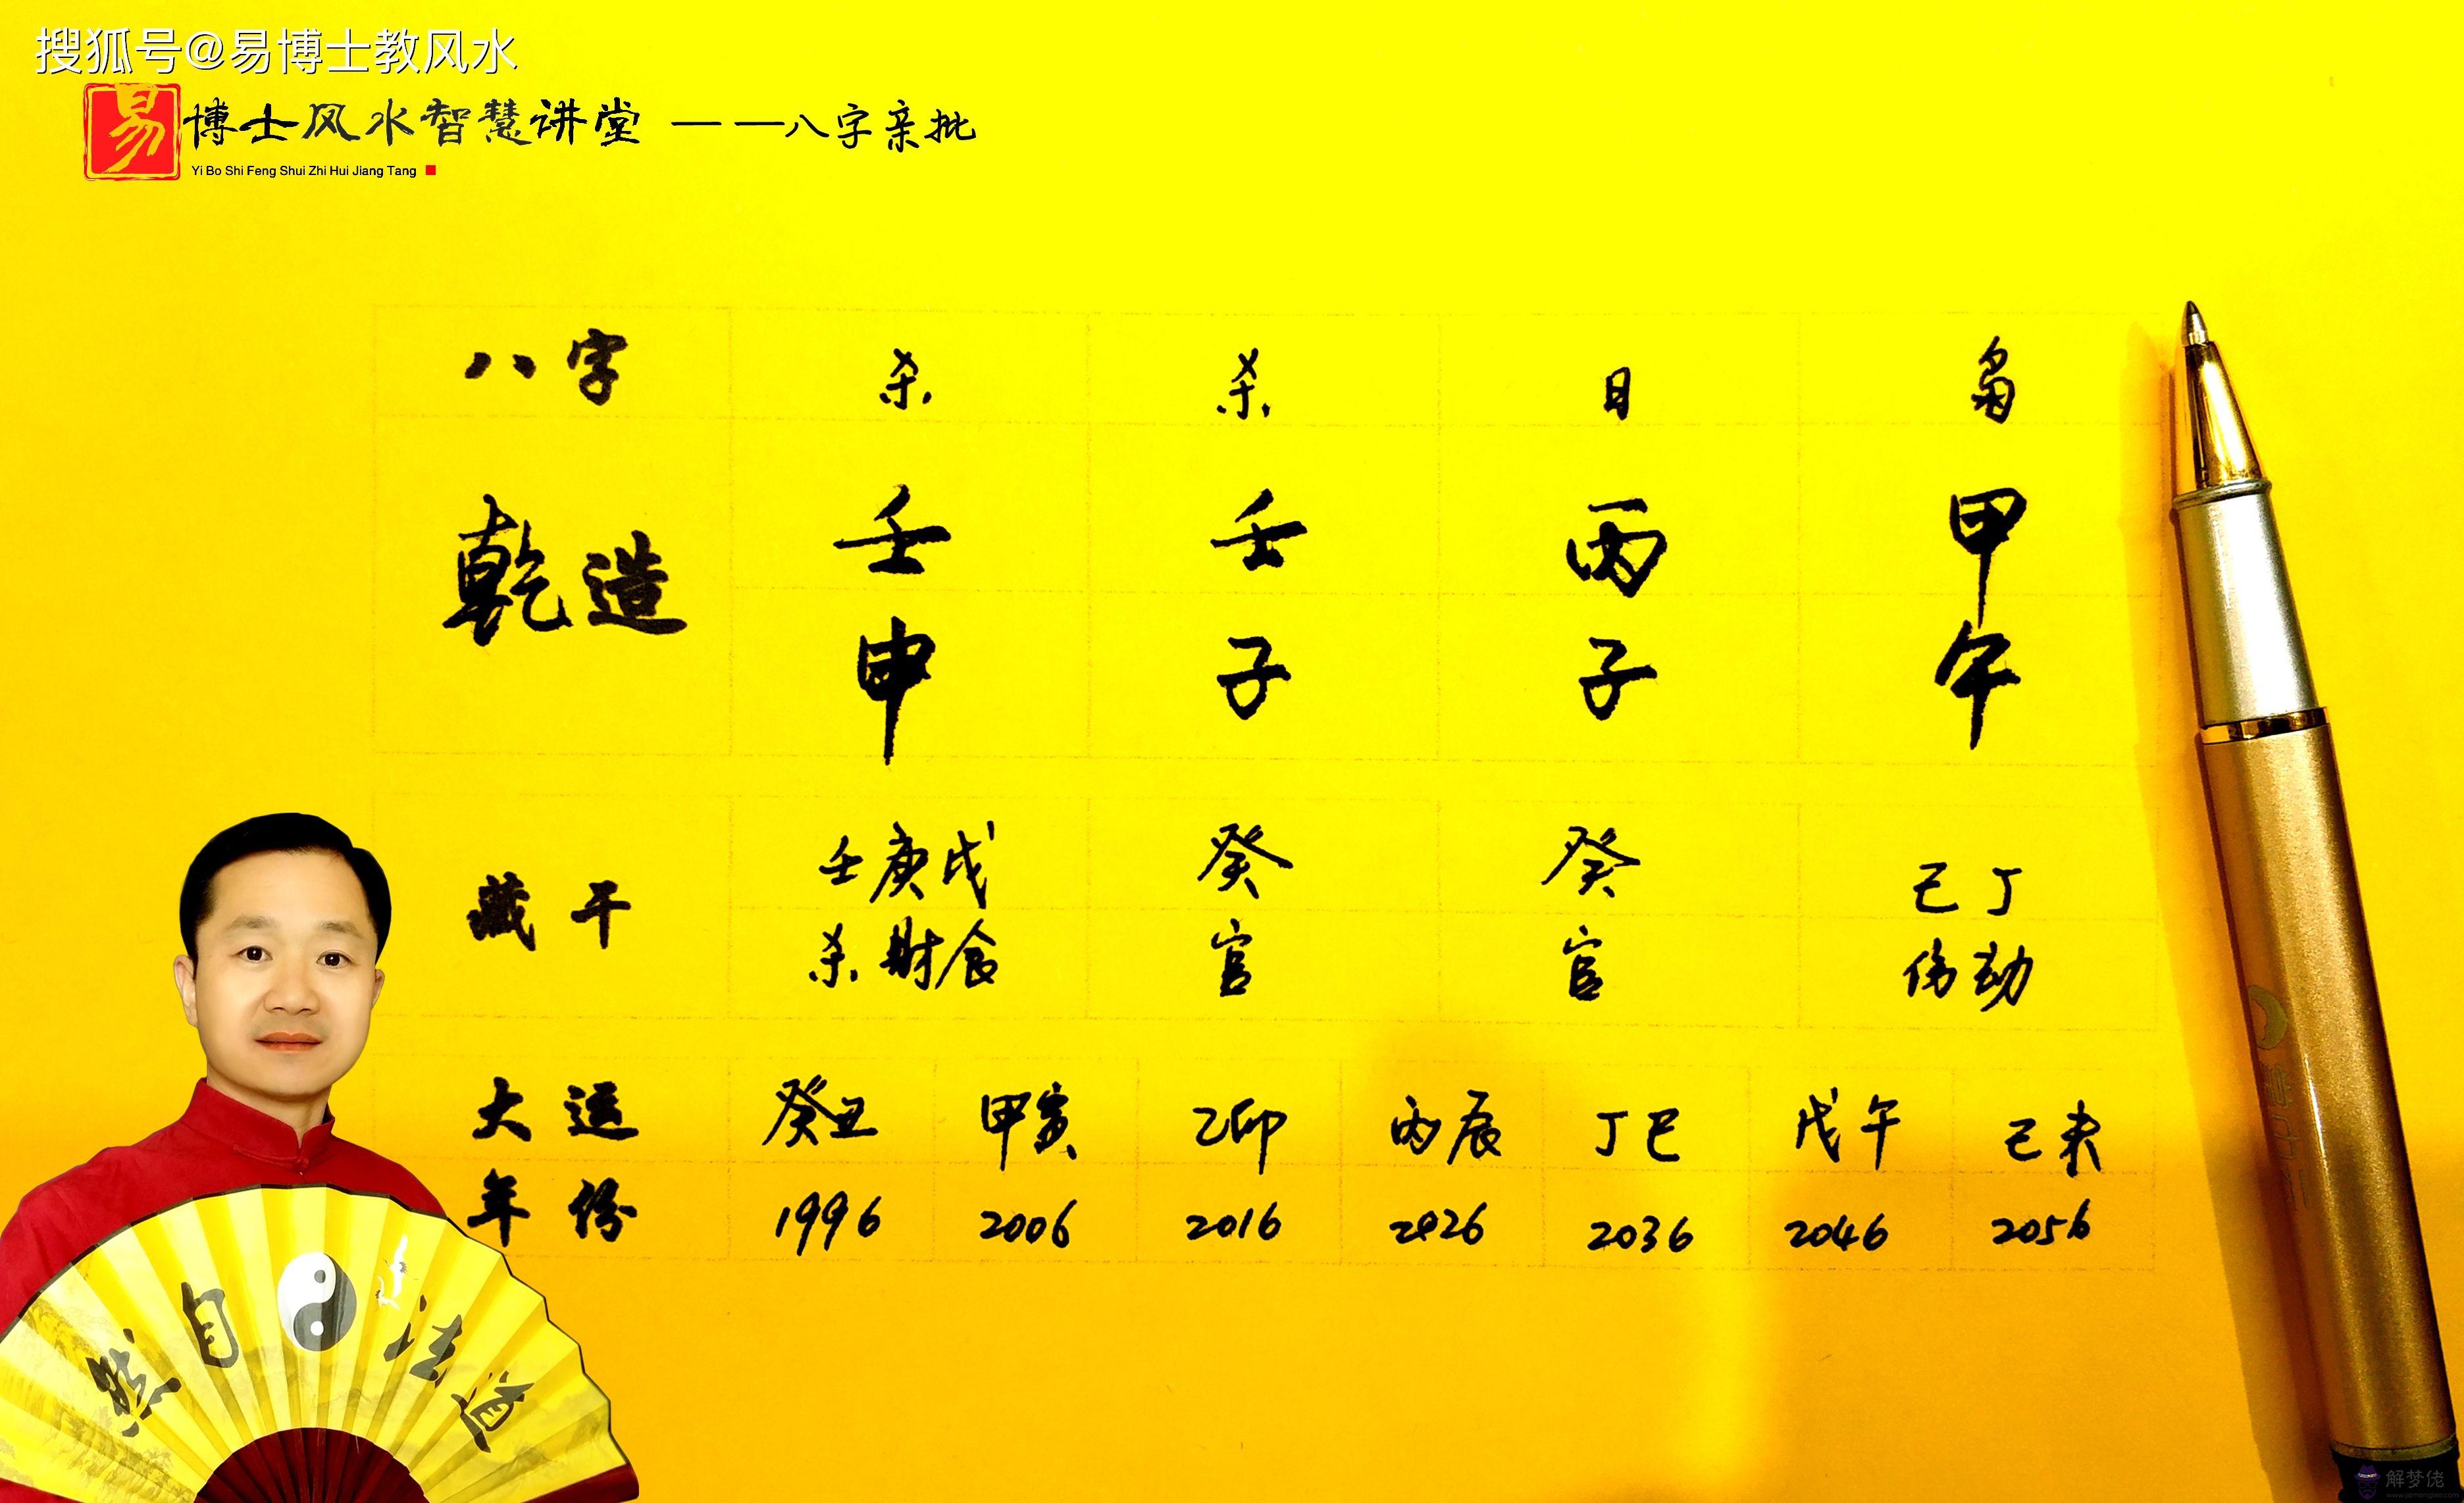 搜狐号@易博士教风水
易 博士风水智慧讲堂 ——八字亲批
Yi Bo Shi Feng Shui Zhi Hui Jiang Tang
八字 杀 杀 日 枭
乾造 壬 壬 丙 甲
申 子 子 午
藏干 壬庚戊 癸 癸 己丁
杀财食 官 官 伤劫
大运 癸丑 甲寅 乙卯 丙辰 丁巳 戊午 己未
年份 1996 2006 2016 2026 2036 2046 2056
然自法道
解梦佬